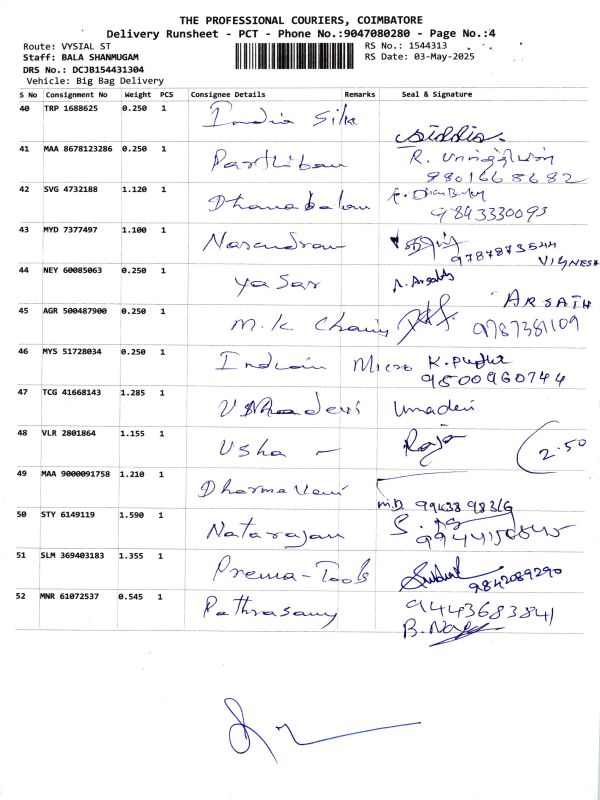 THE PROFESSIONAL COURIERS, COIMBATORE
Delivery Runsheet - PCT - Phone No.:9047080280 - Page No.:4
Route: VYSIAL ST
RS No.: 1544313
Staff: BALA SHANMUGAM
RS Date: 03-May-2025
DRS No.: DCJB154431304
Vehicle: Big Bag Delivery
S No Consignment No Weight PCS Consignee Details Remarks Seal & Signature
40 TRP 1688625 0.250 1 India Silk
41 MAA 8678123286 0.250 1 Parthiban R.
9801668682
42 SVG 4732188 1.120 1 Dhanabalan
9843330093
43 MYD 7377497 1.100 1 Narendran
9787873544
VIGNESH
44 NEY 60085063 0.250 1 Yasar
ARSATH
45 AGR 500487900 0.250 1 M.K. Chainy 9787381109
46 MYS 51728034 0.250 1 Indian Micro
9500960744
47 TCG 41668143 1.285 1 Umadevi Umadevi
48 VLR 2801864 1.155 1 Usha - Raja 2.50
49 MAA 9000091758 1.210 1 Dharmaveni
M.D.
50 STY 6149119 1.590 1 Natarajan
51 SLM 369403183 1.355 1 Prema-Tools
9842089290
52 MNR 61072537 0.545 1 Pathrasamy 9443683841
B.